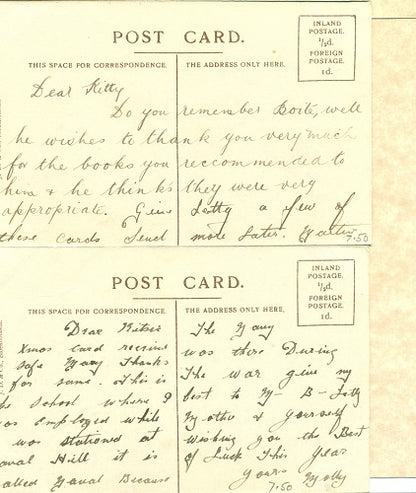 POST CARD.
INLAND
POSTAGE.
½d.
FOREIGN
POSTAGE.
1d.
THIS SPACE FOR CORRESPONDENCE.
THE ADDRESS ONLY HERE.
Dear Kitty
Do you remember Boité, well
he wishes to thank you very much
for the books you reccommended to
him & he thinks they were very
appropriate. Give Letty a few of
these Cards Send more Later.
7.50
POST CARD.
INLAND
POSTAGE.
½d.
FOREIGN
POSTAGE.
1d.
THIS SPACE FOR CORRESPONDENCE.
THE ADDRESS ONLY HERE.
Dear
Xmas Card
safe Many Thanks
for same. This is
the School where I
was employed while
was stationed at
Naval Hill it is
called Naval Because
The Navy
was there During
The war give my
best to M- B- Letty
Mother & yourself
wishing you the Best
of Luck This year
yours
7.50